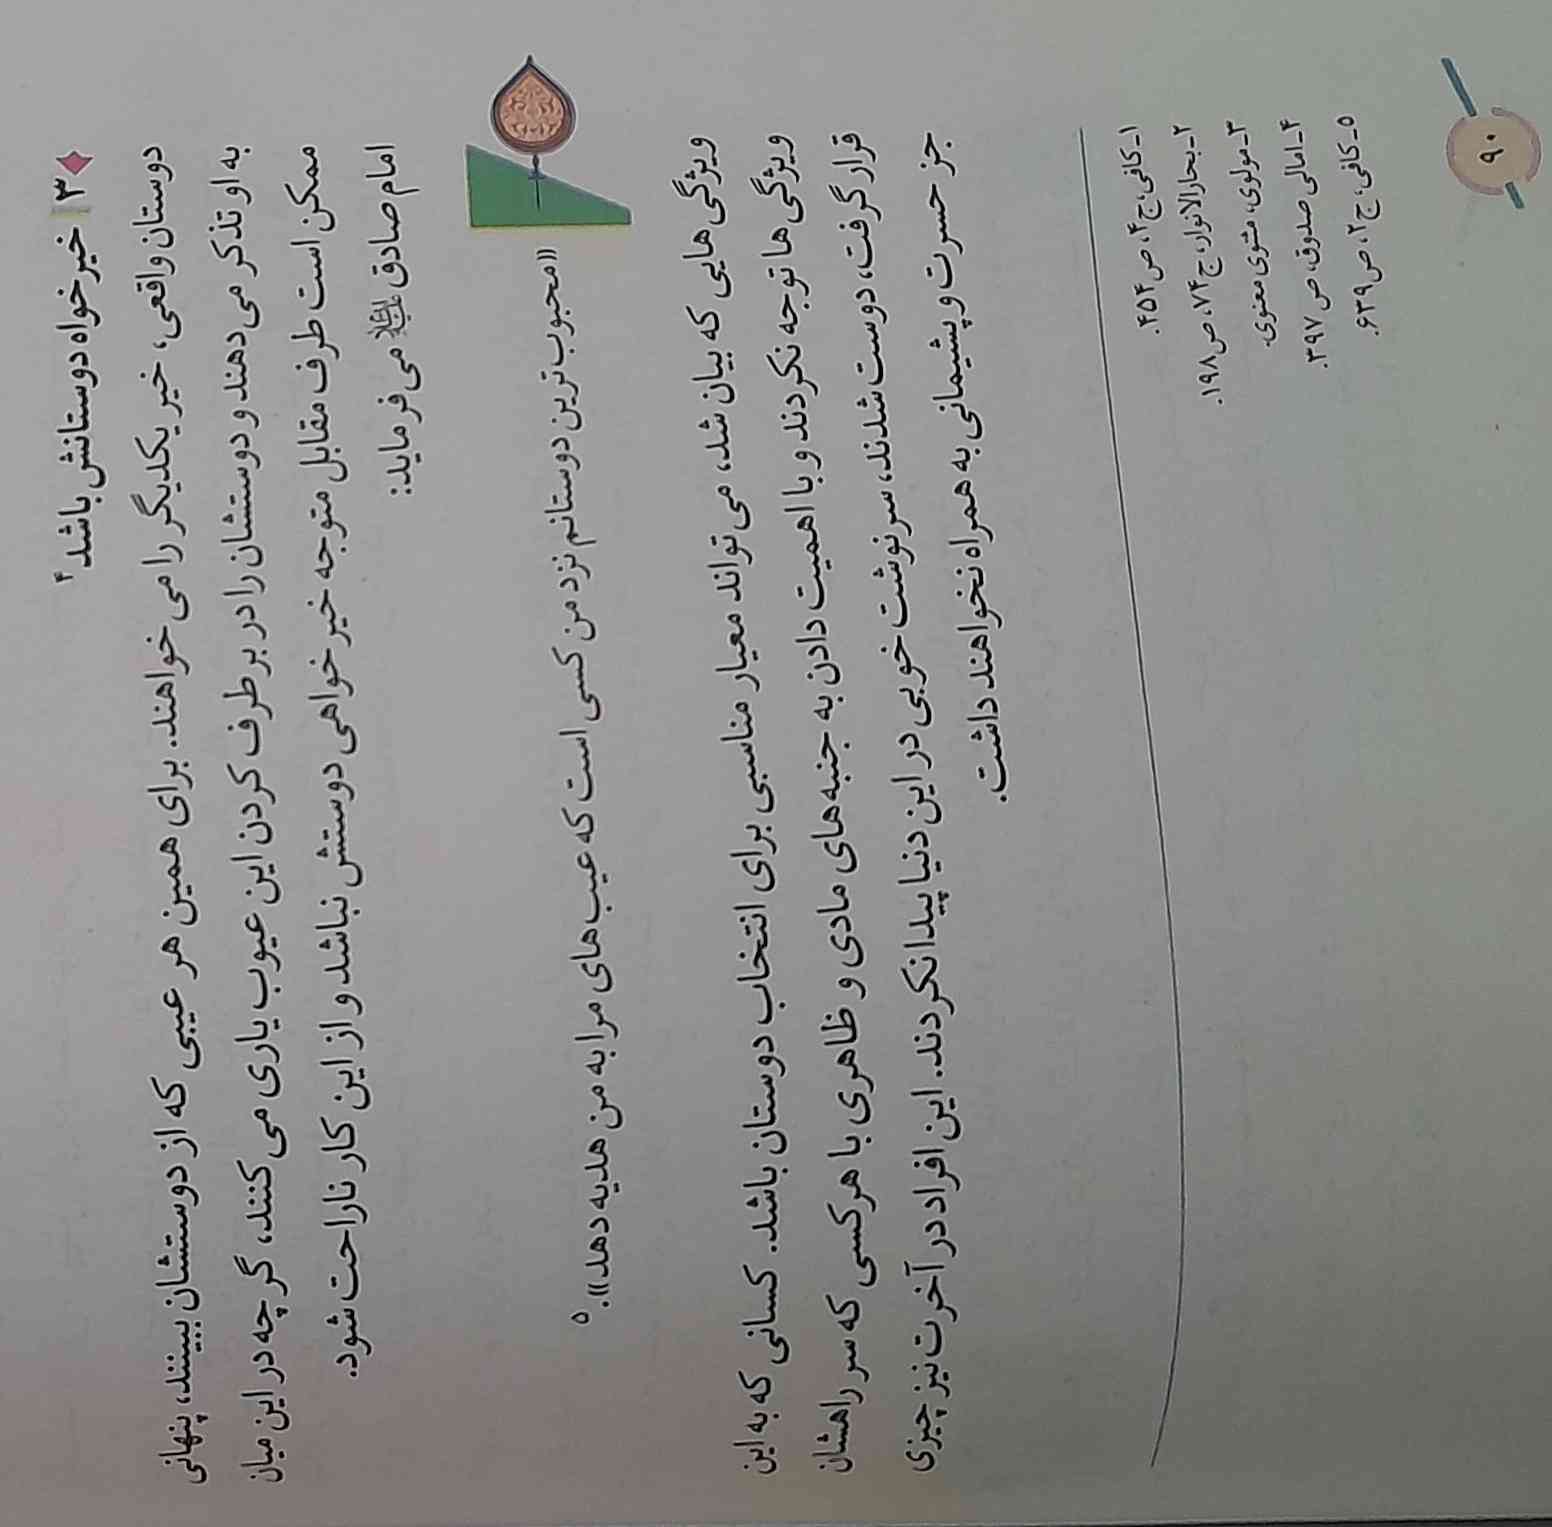 ۳ خیرخواه دوستانش باشد۴
دوستان واقعی، خیر یکدیگر را می خواهند. برای همین هر عیبی که از دوستشان ببینند، پنهانی
به او تذکر می دهند و دوستشان را در برطرف کردن این عیوب یاری می کنند، گرچه در این میان
ممکن است طرف مقابل متوجه خیرخواهی دوستش نباشد و از این کار ناراحت شود.
امام صادق علیه‌السلام می فرماید:
«محبوب ترین دوستانم نزد من کسی است که عیب های مرا به من هدیه دهد».۵
ویژگی هایی که بیان شد، می تواند معیار مناسبی برای انتخاب دوستان باشد. کسانی که به این
ویژگی ها توجه نکردند و با اهمیت دادن به جنبه های مادی و ظاهری با هر کسی که سر راهشان
قرار گرفت، دوست شدند، سرنوشت خوبی در این دنیا پیدا نکردند. این افراد در آخرت نیز چیزی
جز حسرت و پشیمانی به همراه نخواهند داشت.
۱ـ کافی، ج۴، ص۴۵۴.
۲ـ بحارالانوار، ج۷۴، ص۱۹۸.
۳ـ مولوی، مثنوی معنوی.
۴ـ امالی صدوق، ص۳۹۷.
۵ـ کافی، ج۲، ص۶۳۹.
۹۰